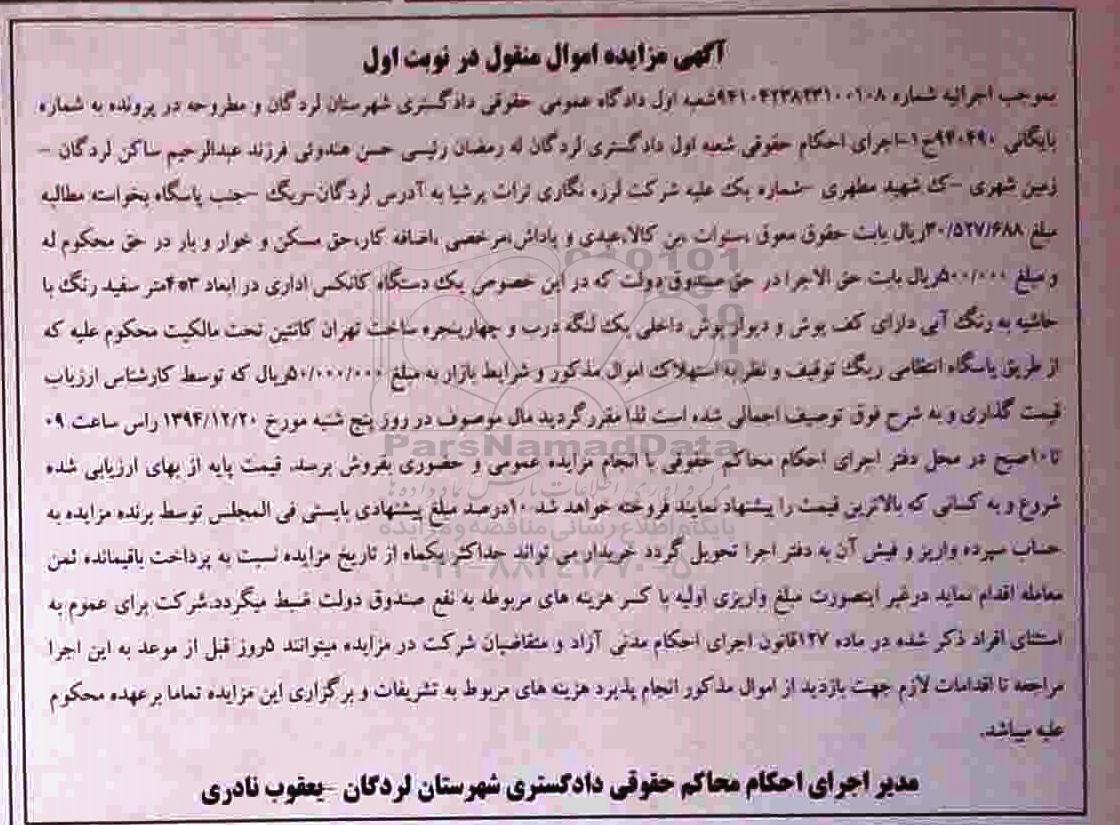 آگهی مزایده اموال منقول در نوبت اول
بموجب اجرائیه شماره ۹۴۱۰۴۲۳۸۲۳۱۰۰۱۰۸شعبه اول دادگاه عمومی حقوقی دادگستری شهرستان لردگان و مطروحه در پرونده به شماره
بایگانی ۹۴۰۴۹۰ح۱-اجرای احکام حقوقی شعبه اول دادگستری لردگان له رمضان رئیسی حسن هندوئی فرزند عبدالرحیم ساکن لردگان –
زمین شهری –ک شهید مطهری –شماره یک علیه شرکت لرزه نگاری تراث پرشیا به آدرس لردگان-ریگ –جنب پاسگاه بخواسته مطالبه
مبلغ ۳۰/۵۲۷/۶۸۸ریال بابت حقوق معوق ،سنوات ،بن کالا،عیدی و پاداش،مرخصی ،اضافه کار،حق مسکن و خوار و بار در حق محکوم له
و مبلغ ۵۰۰/۰۰۰ریال بابت حق الاجرا در حق صندوق دولت که در این خصوص یک دستگاه کانکس اداری در ابعاد ۳*۴متر سفید رنگ با
حاشیه به رنگ آبی دارای کف پوش و دیوار پوش داخلی یک لنگه درب و چهارپنجره ساخت تهران کانتین تحت مالکیت محکوم علیه که
از طریق پاسگاه انتظامی ریگ توقیف و نظر به استهلاک اموال مذکور و شرایط بازار به مبلغ ۵۰/۰۰۰/۰۰۰ریال که توسط کارشناس ارزیاب
قیمت گذاری و به شرح فوق توصیف اجمالی شده است لذا مقرر گردید مال موصوف در روز پنج شنبه مورخ ۱۳۹۴/۱۲/۲۰ راس ساعت ۰۹
تا۱۰صبح در محل دفتر اجرای احکام محاکم حقوقی با انجام مزایده عمومی و حضوری بفروش برسد. قیمت پایه از بهای ارزیابی شده
شروع و به کسانی که بالاترین قیمت را پیشنهاد نمایند فروخته خواهد شد.۱۰درصد مبلغ پیشنهادی بایستی فی المجلس توسط برنده مزایده به
حساب سپرده واریز و فیش آن به دفتر اجرا تحویل گردد خریدار می تواند حداکثر یکماه از تاریخ مزایده نسبت به پرداخت باقیمانده ثمن
معامله اقدام نماید درغیر اینصورت مبلغ واریزی اولیه با کسر هزینه های مربوطه به نفع صندوق دولت ضبط میگردد.شرکت برای عموم به
استثنای افراد ذکر شده در ماده ۱۲۷قانون اجرای احکام مدنی آزاد و متقاضیان شرکت در مزایده میتوانند ۵روز قبل از موعد به این اجرا
مراجعه تا اقدامات لازم جهت بازدید از اموال مذکور انجام پذیرد هزینه های مربوط به تشریفات و برگزاری این مزایده تماما بر عهده محکوم
علیه میباشد.
مدیر اجرای احکام محاکم حقوقی دادگستری شهرستان لردگان –یعقوب نادری
ParsNamadData
پایگاه اطلاع رسانی مناقصه و مزایده
۰۲۱-۸۸۳۴۹۶۷۰-۵